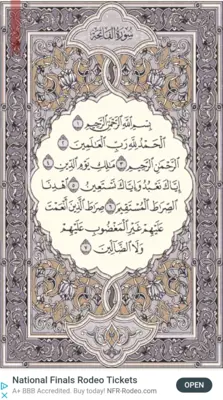 سُورَةُ الفَاتِحَةِ
بِسْمِ اللَّهِ الرَّحْمَٰنِ الرَّحِيمِ ١
الْحَمْدُ لِلَّهِ رَبِّ الْعَالَمِينَ ٢
الرَّحْمَٰنِ الرَّحِيمِ ٣ مَالِكِ يَوْمِ الدِّينِ ٤
إِيَّاكَ نَعْبُدُ وَإِيَّاكَ نَسْتَعِينُ ٥ اهْدِنَا
الصِّرَاطَ الْمُسْتَقِيمَ ٦ صِرَاطَ الَّذِينَ أَنْعَمْتَ
عَلَيْهِمْ غَيْرِ الْمَغْضُوبِ عَلَيْهِمْ
وَلَا الضَّالِّينَ ٧
National Finals Rodeo Tickets
A+ BBB Accredited. Buy today! NFR-Rodeo.com
OPEN